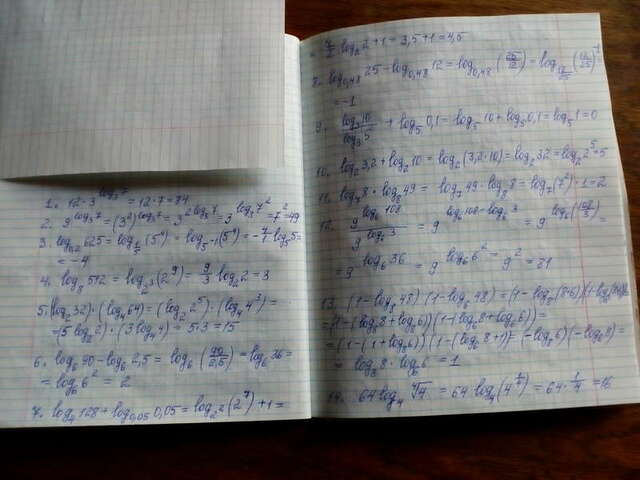 1. 12·3^{log_3 7} = 12·7 = 84
2. 9^{log_3 7} = (3^2)^{log_3 7} = 3^{2 log_3 7} = 3^{log_3 7^2} = 7^2 = 49
3. log_{0,2} 625 = log_{1/5} (5^4) = log_{5^{-1}} (5^4) = -4/1 log_5 5 =
= -4
4. log_8 512 = log_{2^3} (2^9) = 9/3 log_2 2 = 3
5. (log_2 32)·(log_4 64) = (log_2 2^5)·(log_4 4^3) =
= (5 log_2 2)·(3 log_4 4) = 5·3 = 15
6. log_6 90 - log_6 2,5 = log_6 (90/2,5) = log_6 36 =
= log_6 6^2 = 2
7. log_4 128 + log_{0,05} 0,05 = log_{2^2} (2^7) + 1 =
= 7/2 log_2 2 + 1 = 3,5 + 1 = 4,5
8. log_{0,48} 25 - log_{0,48} 12 = log_{0,48} (25/12) = log_{12/25} (12/25)^{-1} =
= -1
9. log_3 10 / log_3 5 + log_5 0,1 = log_5 10 + log_5 0,1 = log_5 1 = 0
10. log_2 3,2 + log_2 10 = log_2 (3,2·10) = log_2 32 = log_2 2^5 = 5
11. log_7 8 · log_8 49 = log_7 49 · log_8 8 = log_7 (7^2)·1 = 2
12. 9^{log_6 108} / 9^{log_6 3} = 9^{log_6 108 - log_6 3} = 9^{log_6 (108/3)} =
= 9^{log_6 36} = 9^{log_6 6^2} = 9^2 = 81
13. (1-log_8 48)(1-log_6 48) = (1-log_8 (8·6))(1-log_6 (8·6)) =
= (1-(log_8 8 + log_8 6))(1-(log_6 8 + log_6 6)) =
= (1-(1+log_8 6))(1-(log_6 8+1)) = (-log_8 6)(-log_6 8) =
= log_8 8 · log_6 6 = 1
14. 64 log_4 \sqrt[4]{4} = 64 log_4 (4^{1/4}) = 64·1/4 = 16